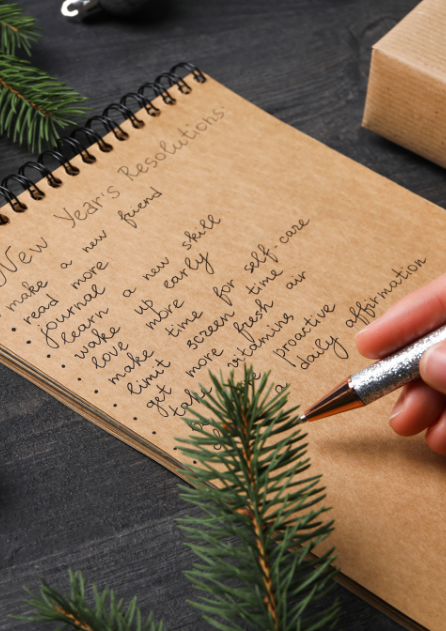 New Year's Resolutions:
• make a new friend
• read more
• journal
• learn a new skill
• wake up early
• love more
• make time for self-care
• limit screen time
• get more fresh air
• take vitamins
proactive
a daily affirmation